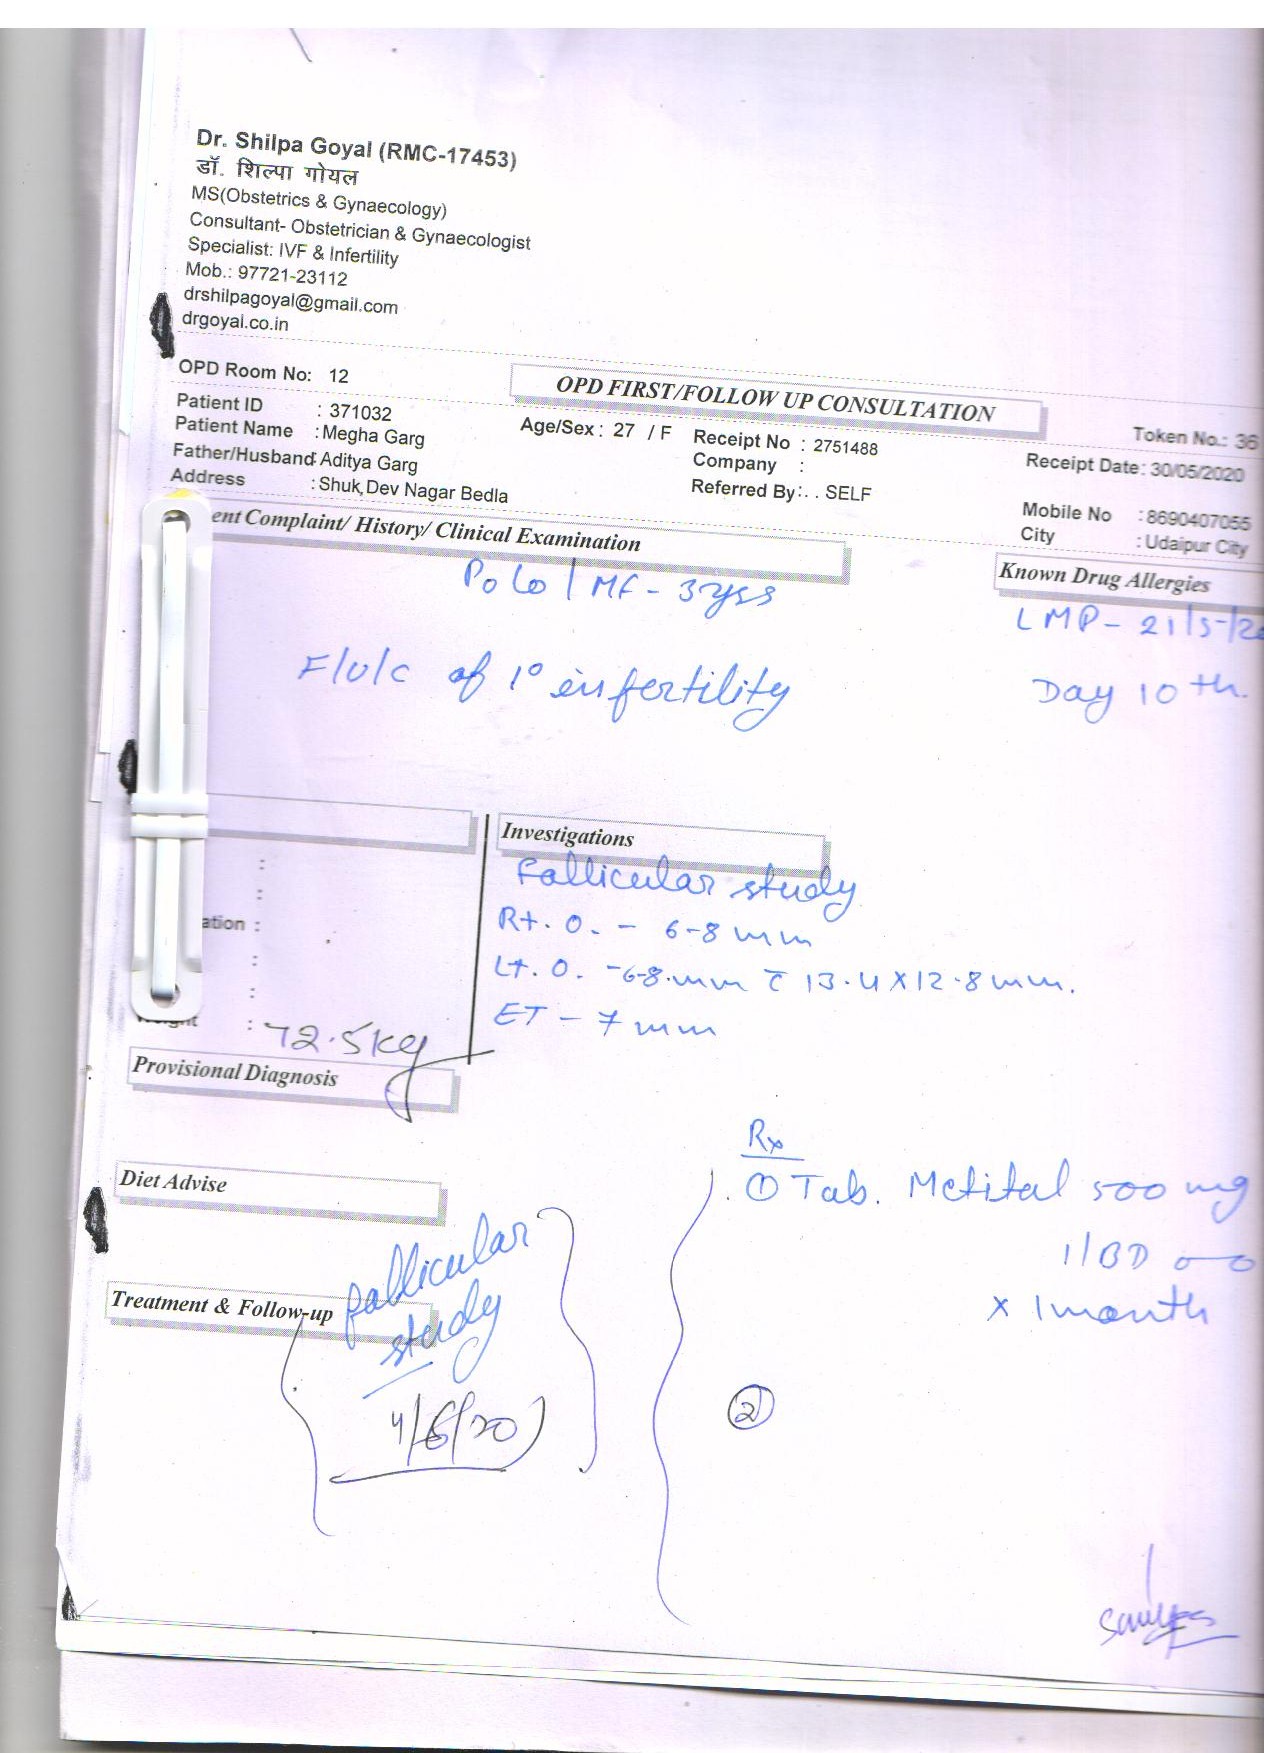 Dr. Shilpa Goyal (RMC-17453)
डॉ. शिल्पा गोयल
MS(Obstetrics & Gynaecology)
Consultant- Obstetrician & Gynaecologist
Specialist: IVF & Infertility
Mob.: 97721-23112
drshilpagoyal@gmail.com
drgoyal.co.in
OPD Room No: 12
OPD FIRST/FOLLOW UP CONSULTATION
Token No.: 36
Patient ID : 371032
Age/Sex : 27 / F
Receipt No : 2751488
Receipt Date: 30/05/2020
Patient Name : Megha Garg
Company :
Father/Husband: Aditya Garg
Referred By: . . SELF
Mobile No : 8690407055
Address : Shuk,Dev Nagar Bedla
City : Udaipur City
ent Complaint/ History/ Clinical Examination
Known Drug Allergies
P0 L0 / MF - 3 yrs
LMP - 21/5/20
F/U/C of 1° infertility
Day 10 th.
Investigations
Follicular study
Rt. O. - 6-8 mm
ation :
Lt. O. - 6-8 mm c̄ 13.4 X 12.8 mm.
ET - 7 mm
Weight : 72.5kg
Provisional Diagnosis
Rx
① Tab. Metital 500 mg
1/BD
x 1 month
②
Diet Advise
Treatment & Follow-up
follicular
study
4/6/20